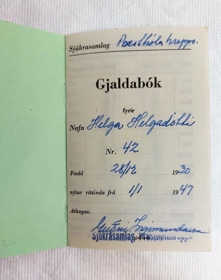 Sjúkrasamlag
Gjaldabók
fyrir
Nafn Helga Helgadóttir
Nr. 42
Fædd 28/12 1930
nýtur réttinda frá 1/1 1947
Athugas.
Sjúkrasamlag